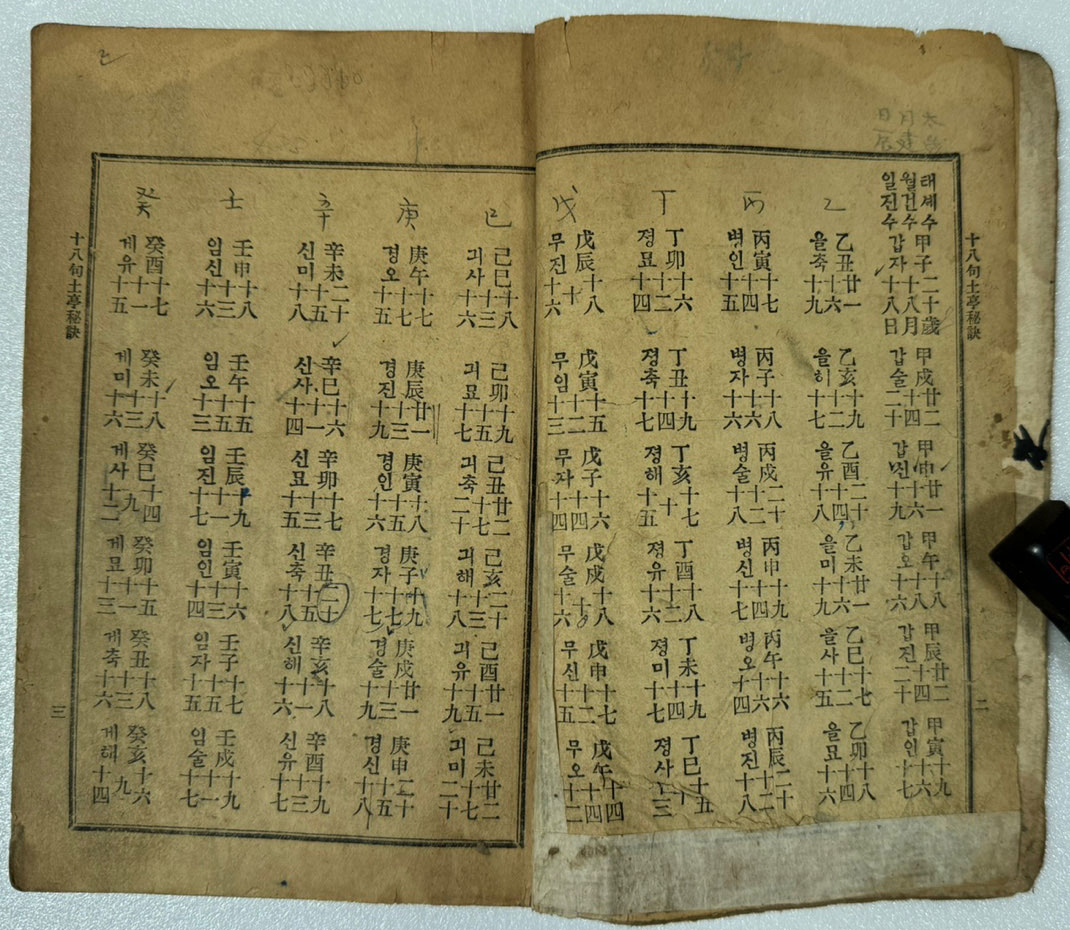 太歲
月建
日辰
十八句土亭秘訣
二
태세수 甲子二十歲 甲戌廿二 甲申廿一 甲午十八 甲辰廿二 甲寅十九
월건수 十八月 十四 十六 十八 十四 十六
일진수 갑자十八日 갑술二十 갑신十九 갑오十六 갑진二十 갑인十七
乙
乙丑廿一 乙亥十九 乙酉二十 乙未廿一 乙巳十七 乙卯十八
十六 十二 十四 十六 十二 十四
을축十九 을히十七 을유十八 을미十九 을사十五 을묘十六
丙
丙寅十七 丙子十八 丙戌二十 丙申十九 丙午十六 丙辰二十
十四 十六 十二 十四 十六 十二
병인十五 병자十六 병술十八 병신十七 병오十四 병진十八
丁
丁卯十六 丁丑十九 丁亥十七 丁酉十八 丁未十九 丁巳十五
十二 十四 十 十二 十四 十
졍묘十四 졍축十七 졍해十五 졍유十六 졍미十七 졍사十三
戊
戊辰十八 戊寅十五 戊子十六 戊戌十八 戊申十七 戊午十四
十 十二 十四 十 十二 十四
무진十六 무임十三 무자十四 무술十六 무신十五 무오十二
己
己巳十八 己卯十九 己丑廿二 己亥二十 己酉廿一 己未廿二
十三 十五 十七 十三 十五 十七
긔사十六 긔묘十七 긔축二十 긔해十八 긔유十九 긔미二十
庚
庚午十七 庚辰廿一 庚寅十八 庚子十九 庚戌廿一 庚申二十
十七 十三 十五 十七 十三 十五
경오十五 경진十九 경인十六 경자十七 경술十九 경신十八
辛
辛未二十 辛巳十六 辛卯十七 辛丑二十 辛亥十八 辛酉十九
十五 十一 十三 十五 十一 十三
신미十八 신사十四 신묘十五 신축十八 신해十六 신유十七
壬
壬申十八 壬午十五 壬辰十九 壬寅十六 壬子十七 壬戌十九
十三 十五 十一 十三 十五 十一
임신十六 임오十三 임진十七 임인十四 임자十五 임술十七
癸
癸酉十七 癸未十八 癸巳十四 癸卯十五 癸丑十八 癸亥十六
十一 十三 九 十一 十三 九
계유十五 계미十六 계사十二 계묘十三 계축十六 계해十四
十八句土亭秘訣
三